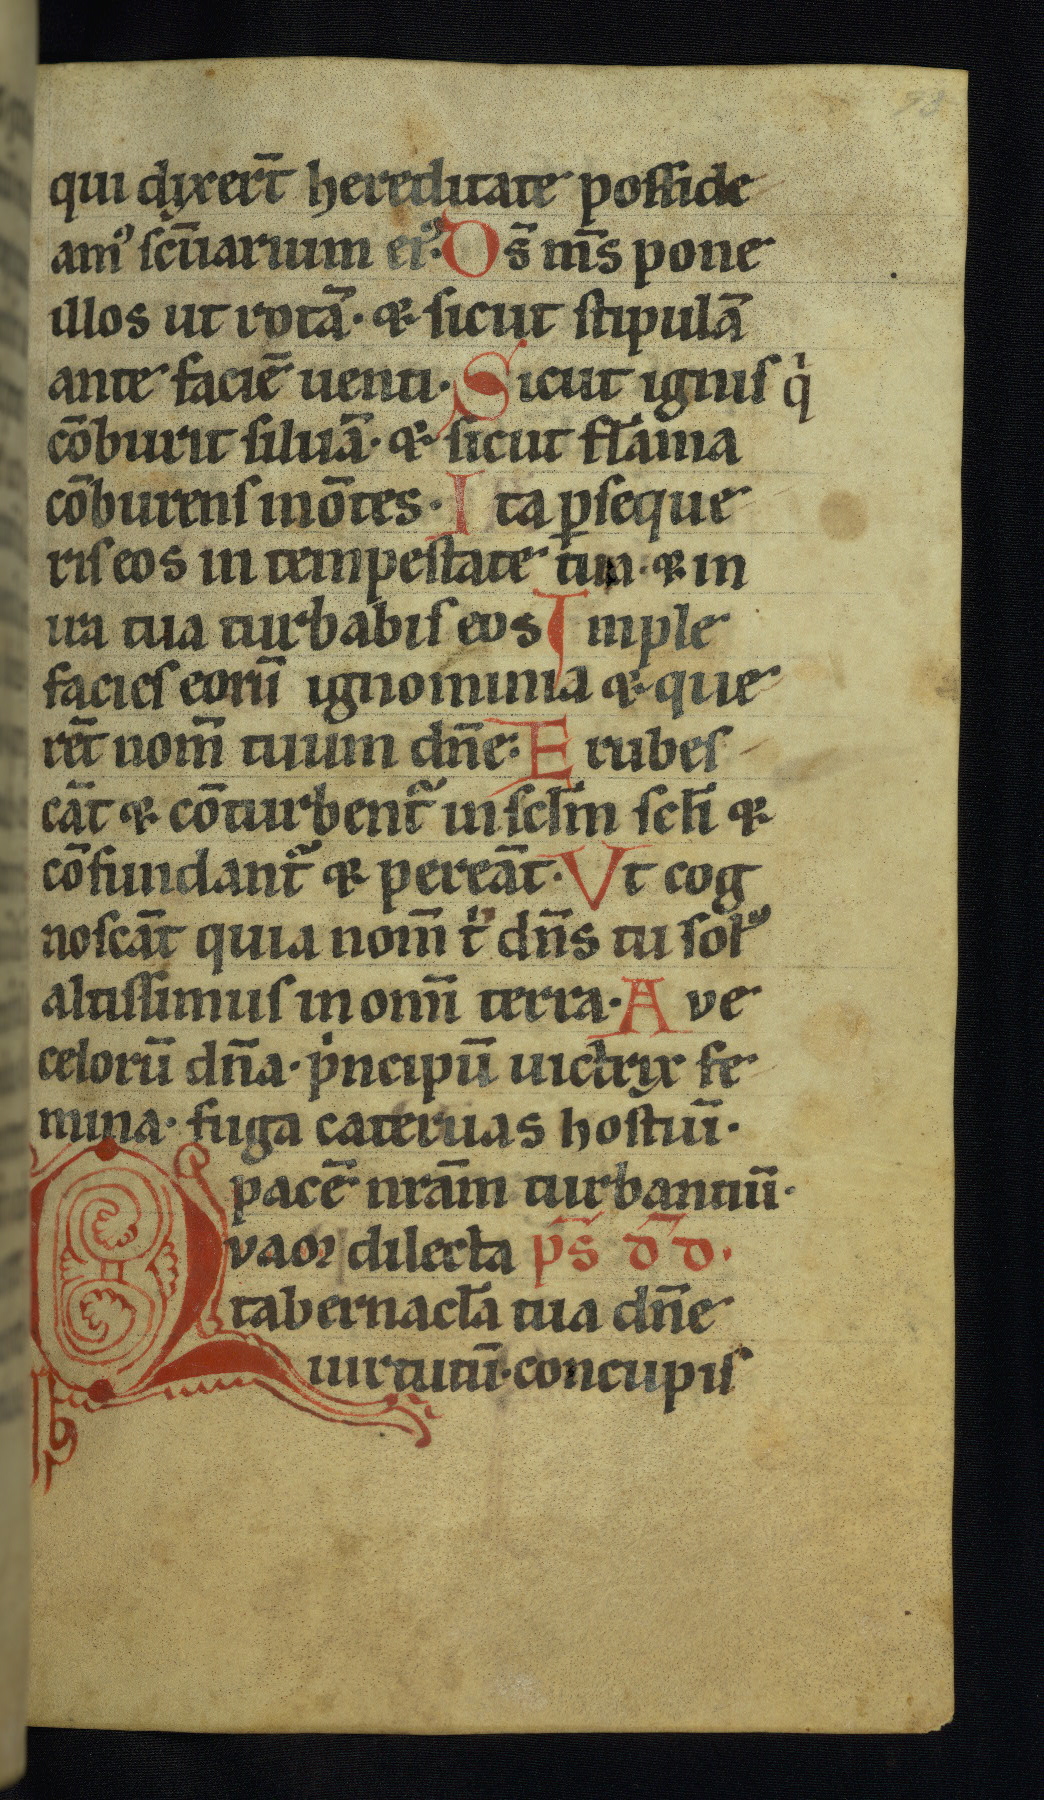 qui dyxer̄t hereditate posside
amꝰ sc̄uarium eiꝰ. Ds̄ m̄s pone
illos ut rotā· & sicut stipulā
ante faciē uenti· Sicut ignis q̇
cōburit siluā· & sicut flāma
cōburens mōtes· Ita ꝑseque
ris eos in tempestate tua· & in
ira tua turbabis eos Imple
facies eorū ignominia & que
rēt nom̄ tuum dn̄e· Erubes
cāt & cōturbent᷑ in sclm̄ scłi &
cōfundant᷑ & pereāt· Vt cog
noscāt quia nom̄ t̊ dn̄s tu solꝰ
altissimus in omī terra· A ve
celorū dn̄a· pͥncipū uictrix fe
mina· fuga cateruas hostiū·
pacē nrām turbantiū·
Qvam dilecta ps̄ dd̄.
tabernacła tua dn̄e
uirtutū· concupis